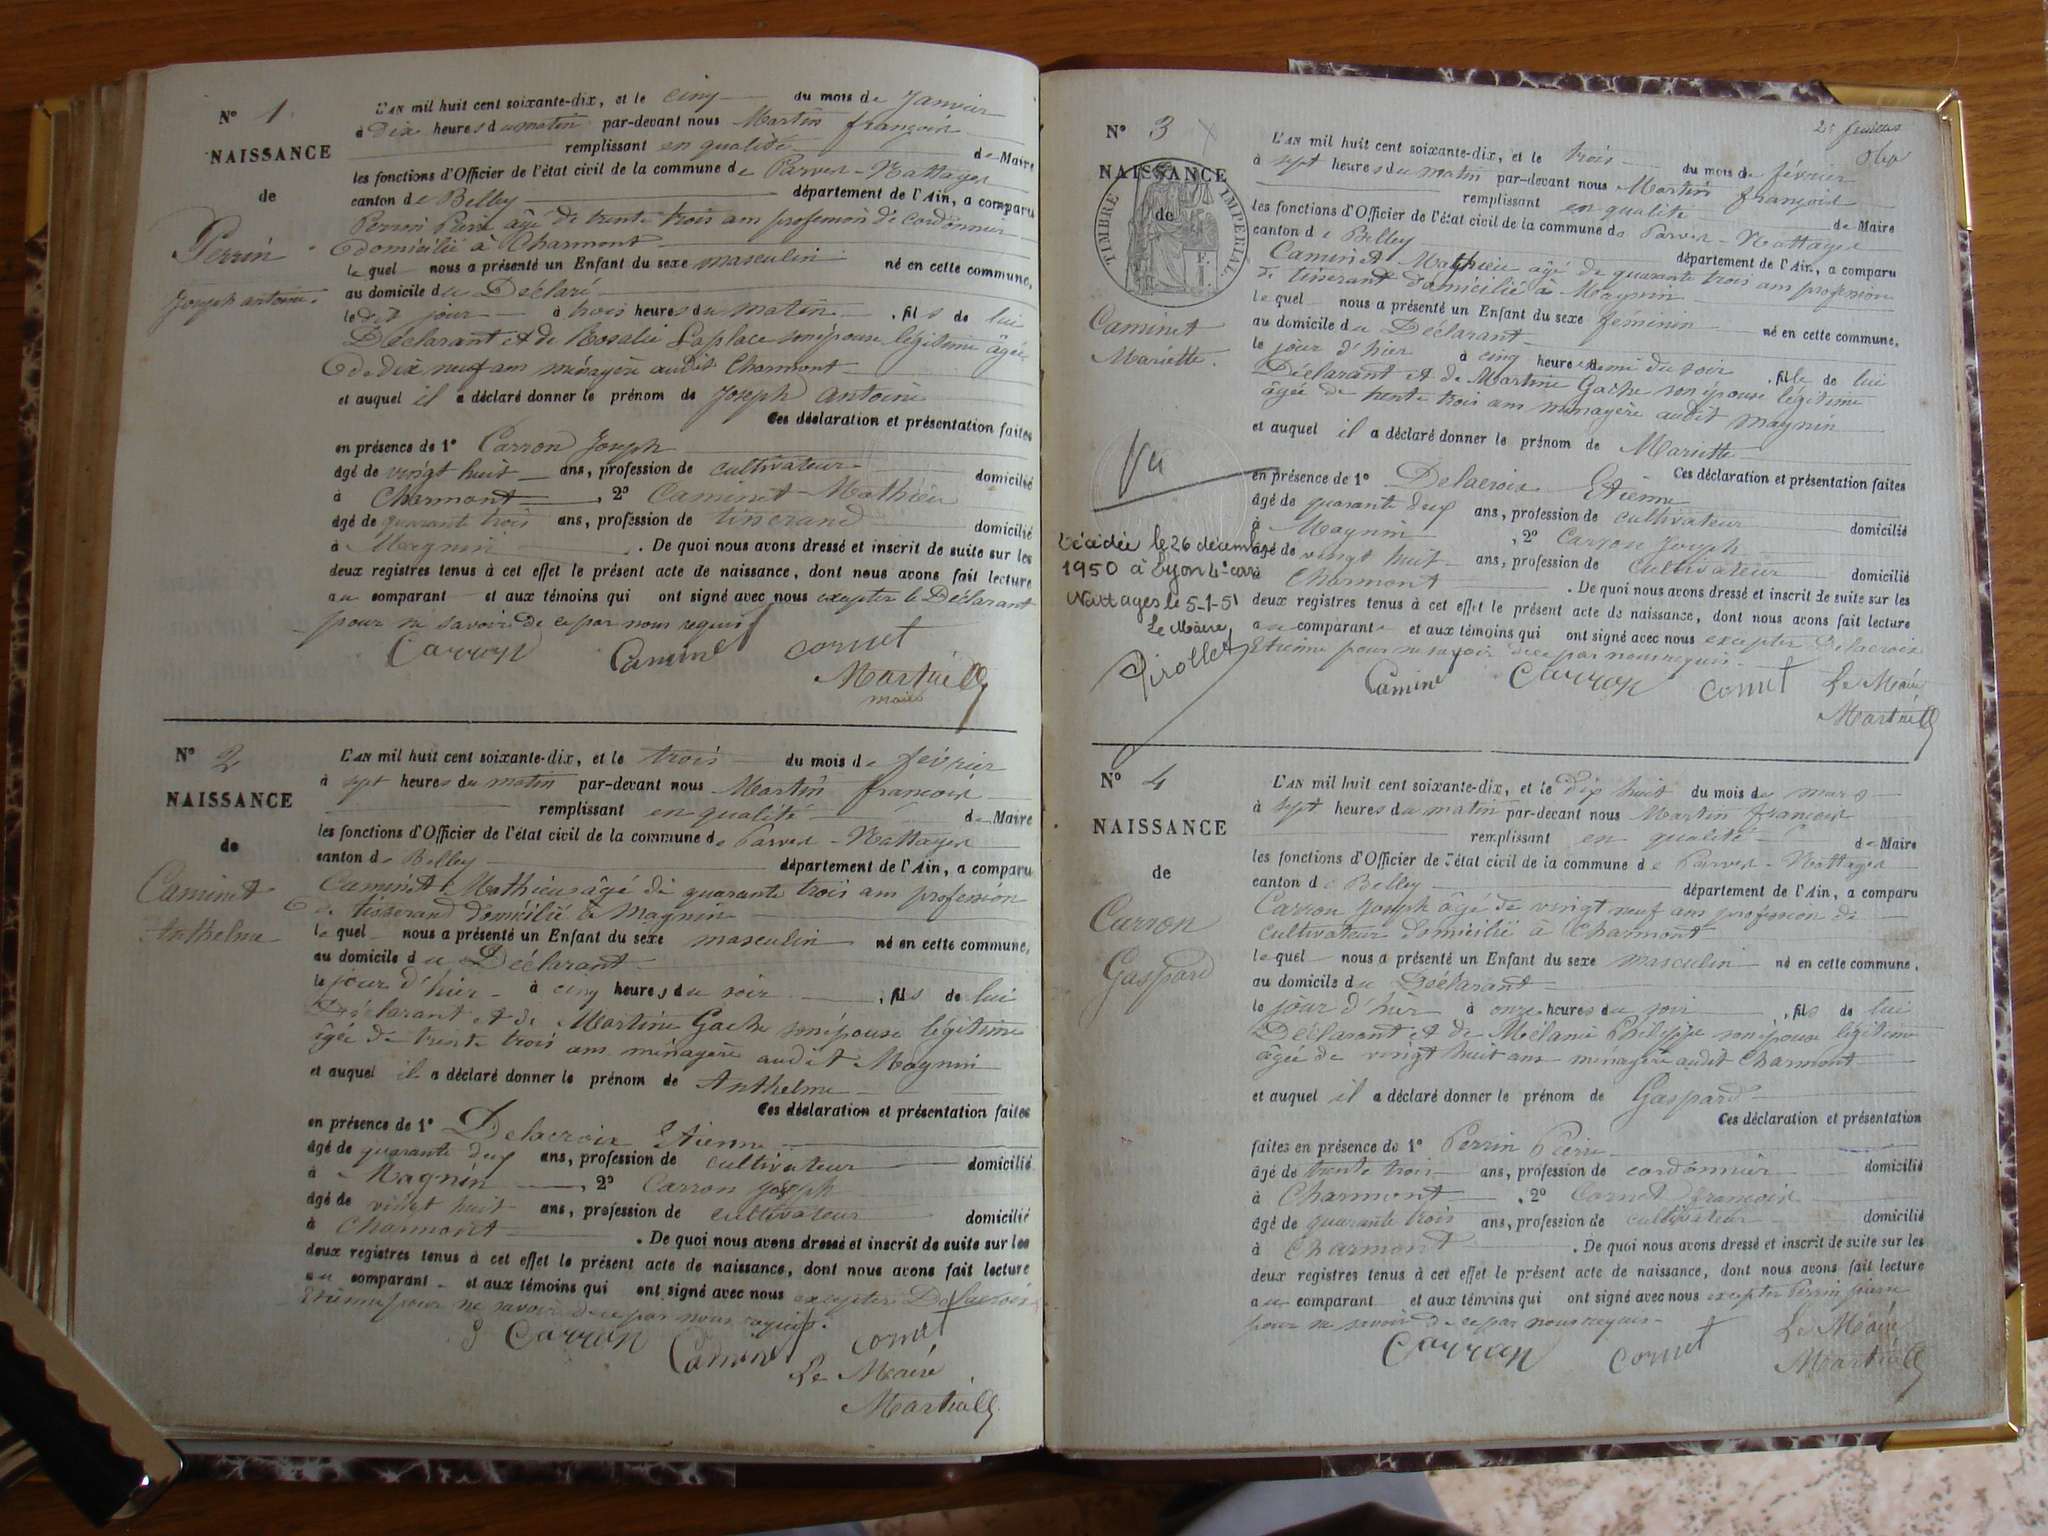 N° 1
NAISSANCE
de
Perrin
Joseph antoine.
L'AN mil huit cent soixante-dix, et le cinq du mois de Janvier
à Dix heures du matin par-devant nous Martin françois
remplissant en qualité de Maire
les fonctions d'Officier de l'état civil de la commune de Parves-Nattages
canton de Belley département de l'Ain, a comparu
Perrin âgé de trente trois ans profession de cordonnier
domicilié à Charmont
le quel nous a présenté un Enfant du sexe masculin né en cette commune,
au domicile du Déclaré
le dit jour à trois heures du matin, fils de lui
Déclarant et de Rosalie Laplace son épouse légitime âgée
de dix neuf ans ménagère audit Charmont
et auquel il a déclaré donner le prénom de Joseph antoine
Ces déclaration et présentation faites
en présence de 1° Carron Joseph
âgé de vingt huit ans, profession de cultivateur domicilié
à Charmont, 2° Caminet Mathieu
âgé de quarante trois ans, profession de tisserand domicilié
à Magnin. De quoi nous avons dressé et inscrit de suite sur les
deux registres tenus à cet effet le présent acte de naissance, dont nous avons fait lecture
au comparant et aux témoins qui ont signé avec nous excepter le Déclarant
pour ne savoir de ce par nous requis
Carron Caminet cornet
Martin
maire
N° 2
NAISSANCE
de
Caminet
Anthelme
L'AN mil huit cent soixante-dix, et le trois du mois de février
à sept heures du matin par-devant nous Martin françois
remplissant en qualité de Maire
les fonctions d'Officier de l'état civil de la commune de Parves-Nattages
canton de Belley département de l'Ain, a comparu
Caminet Mathieu âgé de quarante trois ans profession
de tisserand domicilié à Magnin
le quel nous a présenté un Enfant du sexe masculin né en cette commune,
au domicile du Déclarant
le jour d'hier à cinq heures du soir, fils de lui
Déclarant et de Martine Gache son épouse légitime
âgée de trente trois ans ménagère audit Magnin
et auquel il a déclaré donner le prénom de Anthelme
Ces déclaration et présentation faites
en présence de 1° Delacroix Etienne
âgé de quarante deux ans, profession de cultivateur domicilié
à Magnin, 2° Carron joseph
âgé de vingt huit ans, profession de cultivateur domicilié
à Charmont. De quoi nous avons dressé et inscrit de suite sur les
deux registres tenus à cet effet le présent acte de naissance, dont nous avons fait lecture
au comparant et aux témoins qui ont signé avec nous excepter Delacroix
Etienne pour ne savoir de ce par nous requis.
Carron Caminet cornet
Le Maire
Martin
2e feuillet
N° 3
NAISSANCE
de
TIMBRE IMPERIAL
Caminet
Mariette.
Vu
Décédée le 26 décembre
1950 à Lyon 4e
Nattages le 5-1-51
Le Maire,
Pirollet
L'AN mil huit cent soixante-dix, et le trois du mois de février
à sept heures du matin par-devant nous Martin françois
remplissant en qualité de Maire
les fonctions d'Officier de l'état civil de la commune de Parves-Nattages
canton de Belley département de l'Ain, a comparu
Caminet Mathieu âgé de quarante trois ans profession
de tinerant domicilié à Magnin
le quel nous a présenté un Enfant du sexe féminin né en cette commune,
au domicile du Déclarant
le jour d'hier à cinq heures demi du soir, fille de lui
Déclarant et de Martine Gache son épouse légitime
âgée de trente trois ans ménagère audit magnin
et auquel il a déclaré donner le prénom de Mariette
Ces déclaration et présentation faites
en présence de 1° Delacroix Etienne
âgé de quarante deux ans, profession de cultivateur domicilié
à Magnin, 2° Carron Joseph
âgé de vingt huit ans, profession de cultivateur domicilié
à Charmont. De quoi nous avons dressé et inscrit de suite sur les
deux registres tenus à cet effet le présent acte de naissance, dont nous avons fait lecture
au comparant et aux témoins qui ont signé avec nous excepter Delacroix
Etienne pour ne savoir de ce par nous requis.
Caminet Carron cornet Le Maire
Martin
N° 4
NAISSANCE
de
Carron
Gaspard
L'AN mil huit cent soixante-dix, et le dix huit du mois de mars
à sept heures du matin par-devant nous Martin françois
remplissant en qualité de Maire
les fonctions d'Officier de l'état civil de la commune de Parves-Nattages
canton de Belley département de l'Ain, a comparu
Carron Joseph âgé de vingt neuf ans profession de
cultivateur domicilié à Charmont
le quel nous a présenté un Enfant du sexe masculin né en cette commune,
au domicile du Déclarant
le jour d'hier à onze heures du soir, fils de lui
Déclarant et de Mélanie Philippe son épouse légitime
âgée de vingt huit ans ménagère audit Charmont
et auquel il a déclaré donner le prénom de Gaspard
Ces déclaration et présentation
faites en présence de 1° Perrin Pierre
âgé de trente trois ans, profession de cordonnier domicilié
à Charmont, 2° Cornet françois
âgé de quarante trois ans, profession de cultivateur domicilié
à Charmont. De quoi nous avons dressé et inscrit de suite sur les
deux registres tenus à cet effet le présent acte de naissance, dont nous avons fait lecture
au comparant et aux témoins qui ont signé avec nous excepter Perrin pierre
pour ne savoir de ce par nous requis
Carron cornet Le Maire
Martin